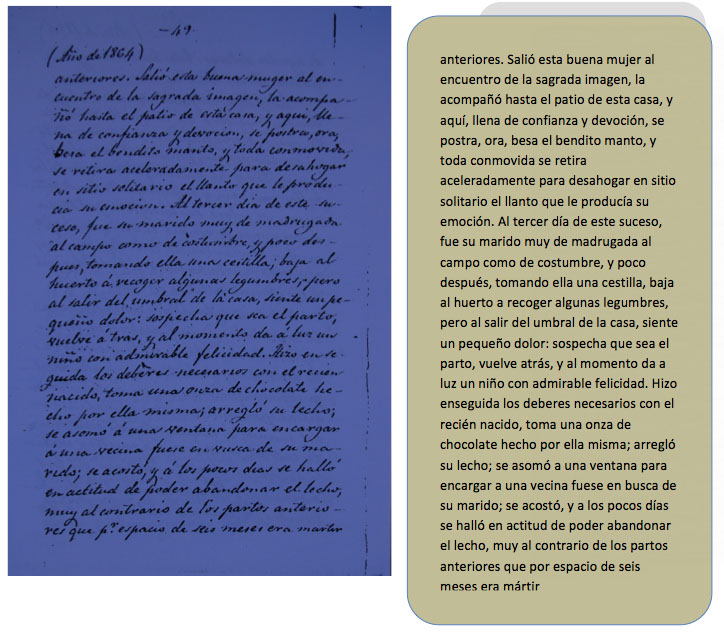 -49
(Año de 1864)
anteriores. Salió esta buena muger al en-
cuentro de la sagrada imagen, la acompa-
ñó hasta el patio de esta casa, y aquí, lle-
na de confianza y devocion, se postra, ora,
besa el bendito manto, y toda conmovida,
se retira aceleradamente para desahogar
en sitio solitario el llanto que le produ-
cia su emocion. Al tercer dia de este su-
ceso, fue su marido muy de madrugada
al campo como de costumbre, y poco des-
pues, tomando ella una cestilla, baja al
huerto á recoger algunas legumbres, pero
al salir del umbral de la casa, siente un pe-
queño dolor: sospecha que sea el parto,
vuelve á tras, y al momento da á luz un
niño con admirable felicidad. Hizo en se-
guida los deberes necesarios con el recien
nacido, toma una onza de chocolate he-
cho por ella misma; arregló su lecho;
se asomó á una ventana para encargar
á una vecina fuese en vusca de su ma-
rido; se acostó, y á los pocos dias se halló
en actitud de poder abandonar el lecho,
muy al contrario de los partos anterio-
res que pr. espacio de seis meses era martir
anteriores. Salió esta buena mujer al
encuentro de la sagrada imagen, la
acompañó hasta el patio de esta casa, y
aquí, llena de confianza y devoción, se
postra, ora, besa el bendito manto, y
toda conmovida se retira
aceleradamente para desahogar en sitio
solitario el llanto que le producía su
emoción. Al tercer día de este suceso,
fue su marido muy de madrugada al
campo como de costumbre, y poco
después, tomando ella una cestilla, baja
al huerto a recoger algunas legumbres,
pero al salir del umbral de la casa, siente
un pequeño dolor: sospecha que sea el
parto, vuelve atrás, y al momento da a
luz un niño con admirable felicidad. Hizo
enseguida los deberes necesarios con el
recién nacido, toma una onza de
chocolate hecho por ella misma; arregló
su lecho; se asomó a una ventana para
encargar a una vecina fuese en busca de
su marido; se acostó, y a los pocos días
se halló en actitud de poder abandonar
el lecho, muy al contrario de los partos
anteriores que por espacio de seis
meses era mártir